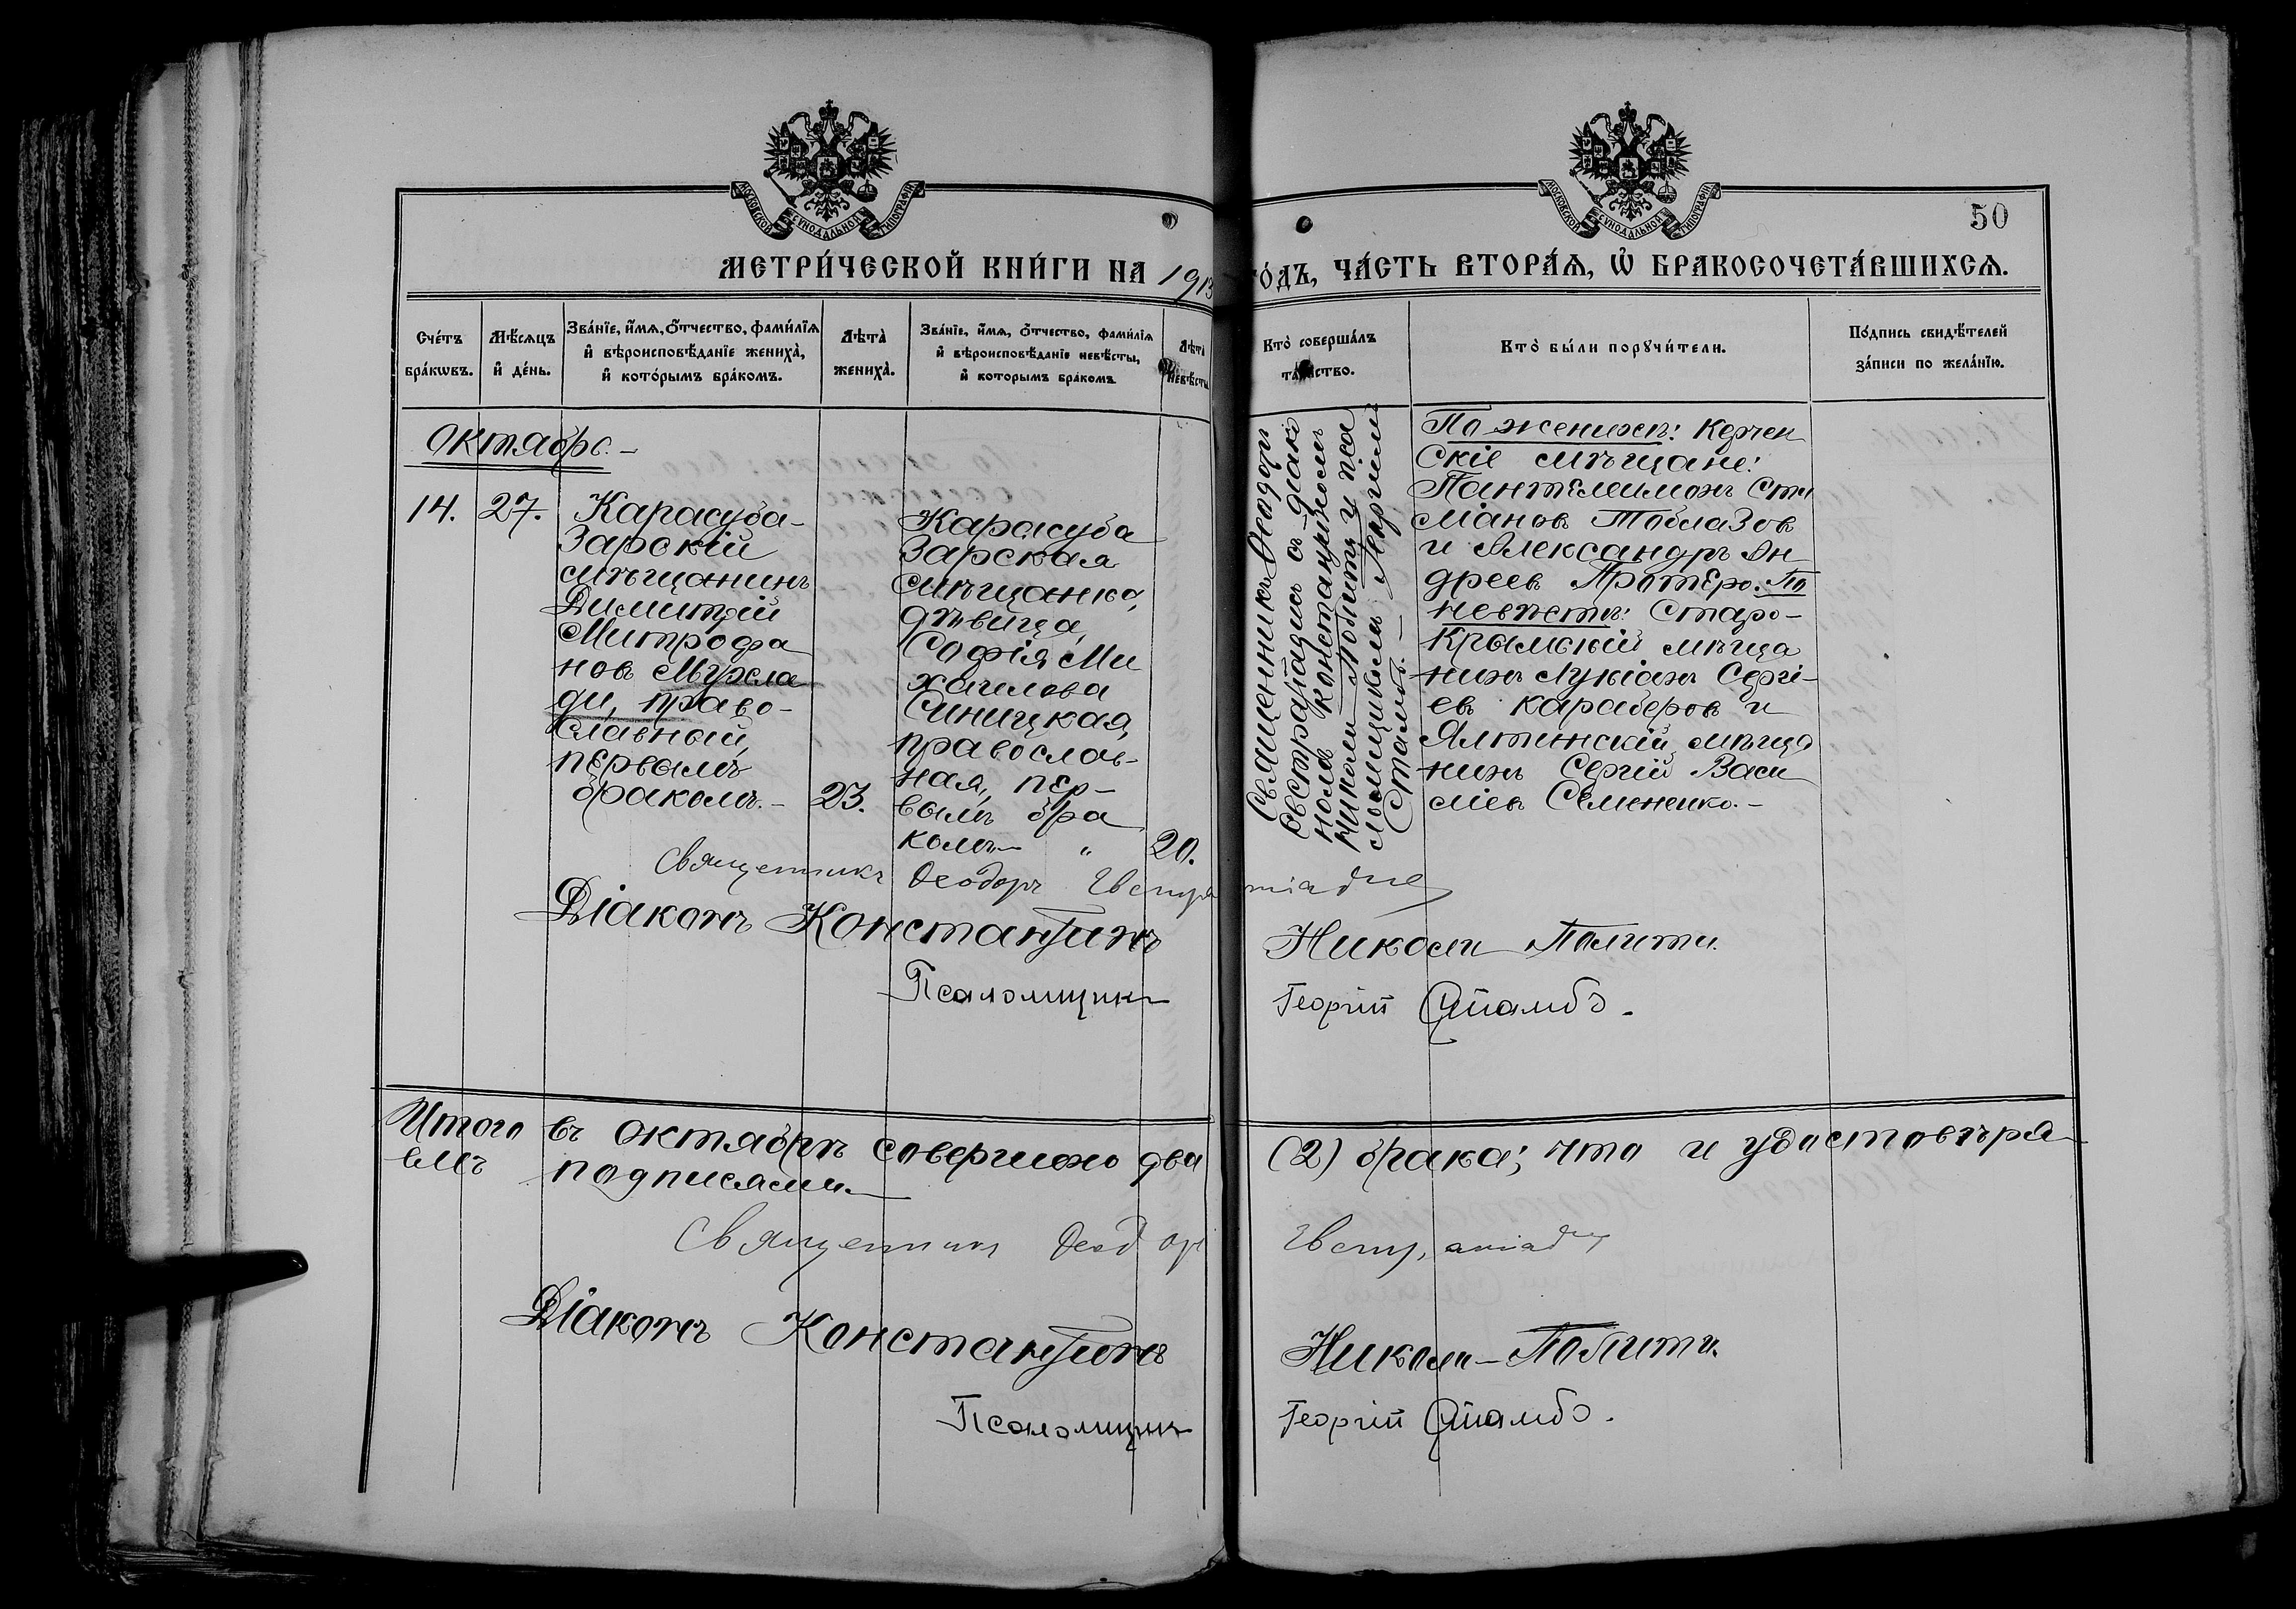 МОСКОВСКОЙ СУНОДАЛЬНОЙ ТИПОГРАФІИ
МОСКОВСКОЙ СУНОДАЛЬНОЙ ТИПОГРАФІИ
50
МЕТРИ́ЧЕСКОЙ КНИ́ГИ НА 1913
ГО́ДЪ, ЧА́СТЬ ВТОРА́Ѧ, Ѡ҆ БРАКОСОЧЕТА́ВШИХСѦ.
Сче́тъ бра́кѡвъ.
Мѣ́сѧцъ и҆ де́нь.
Зва́нїе, и҆́мѧ, ѻ҆́тчество, фами́лїѧ и҆ вѣроисповѣ́данїе жениха̀, и҆ кото́рымъ бра́комъ.
Лѣта̀ жениха̀.
Зва́нїе, и҆́мѧ, ѻ҆́тчество, фами́лїѧ и҆ вѣроисповѣ́данїе невѣ́сты, и҆ которымъ бра́комъ
Лѣта̀ невѣ́сты
Кто̀ соверша́лъ таинство.
Кто̀ бы́ли порꙋчи́тели.
По́дпись свидѣ́телей за́писи по жела́нїю.
Октябрь.-
14. 27.
Карасуба-
зарскій
мѣщанинъ
Димитрій
Митрофа
новъ Мухла
ди, право-
славный,
первымъ
бракомъ.- 23.
Карасуба
зарская
мѣщанка,
дѣвица,
Софія Ми
хаилова
Синицкая,
православ-
ная, пер-
вымъ бра
комъ " 20.
Священникъ Ѳеодоръ
Евстратіадисъ съ діако
номъ Константиномъ
Николи-Полити и пса
ломщикомъ Георгіемъ
Стамбо.-
По женихѣ: Керчен
скіе мѣщане:
Пантелеимонъ Сти
ліановъ Тоблазовъ
и Александръ Ан
дреевъ Протеро. По
невѣстѣ: Старо-
Крымскій мѣща
нинъ Лукіанъ Сергі-
евъ Карадеровъ и
Ялтинскій мѣща
нинъ Сергій Васи
ліевъ Семененко.-
Священникъ Ѳеодоръ Евстратіадис
Діаконъ Константинъ Николи Полити.
Псаломщикъ Георгій Стамбо.
Итого въ октябрѣ совершено два (2) брака; что и удостовѣря
емъ подписями.
Священникъ Ѳеодоръ Евстратіадис
Діаконъ Константинъ Николи-Полити.
Псаломщикъ Георгій Стамбо.